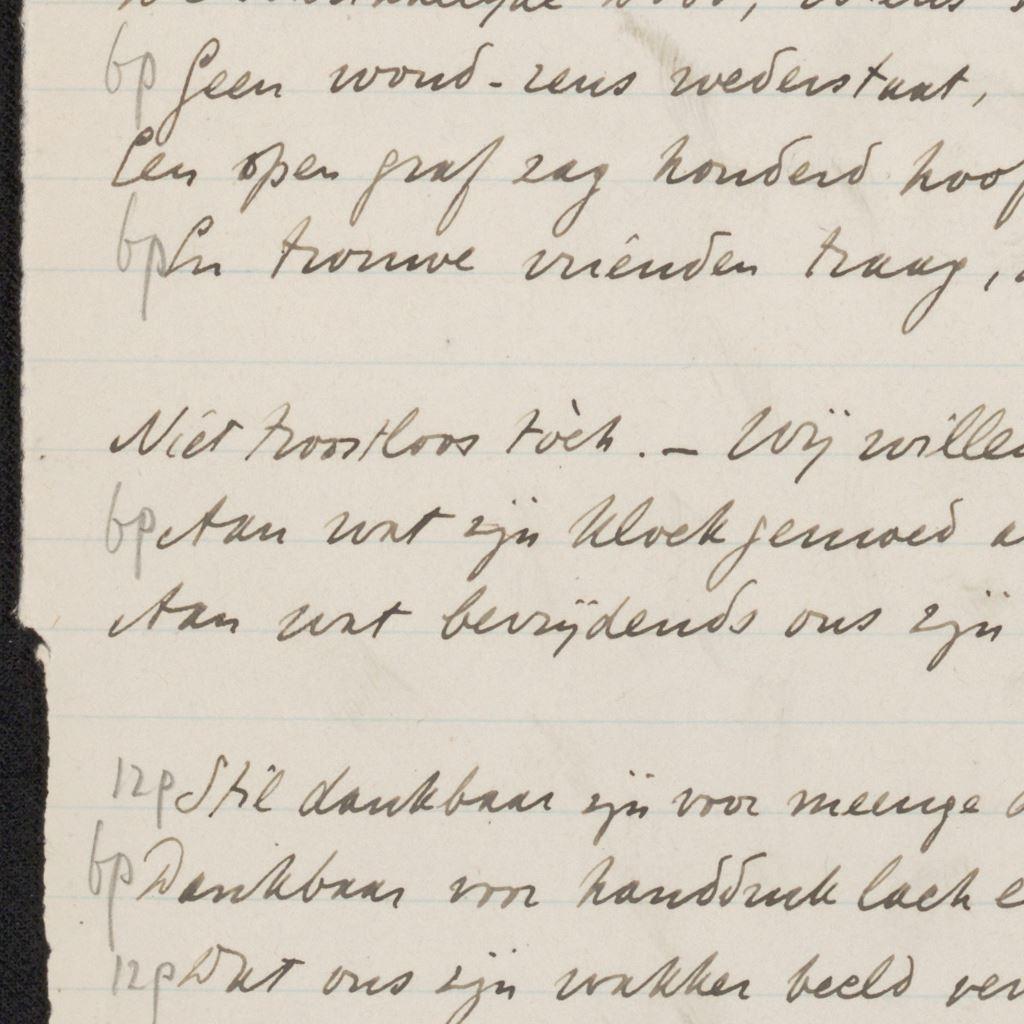 bp Geen wond-zeus wederstaat,
Een open graf zag honderd hoof
bp En trouwe vriénden traag,
Niét troostloos tòch. – Wij willen
bp Aan wat zijn kloek gemoed a
Aan wat bevrijdends ons zijn
12p Stil dankbaar zijn voor meenge
bp Dankbaar voor handdruk lach e
12p Dat ons zijn wakker beeld ver